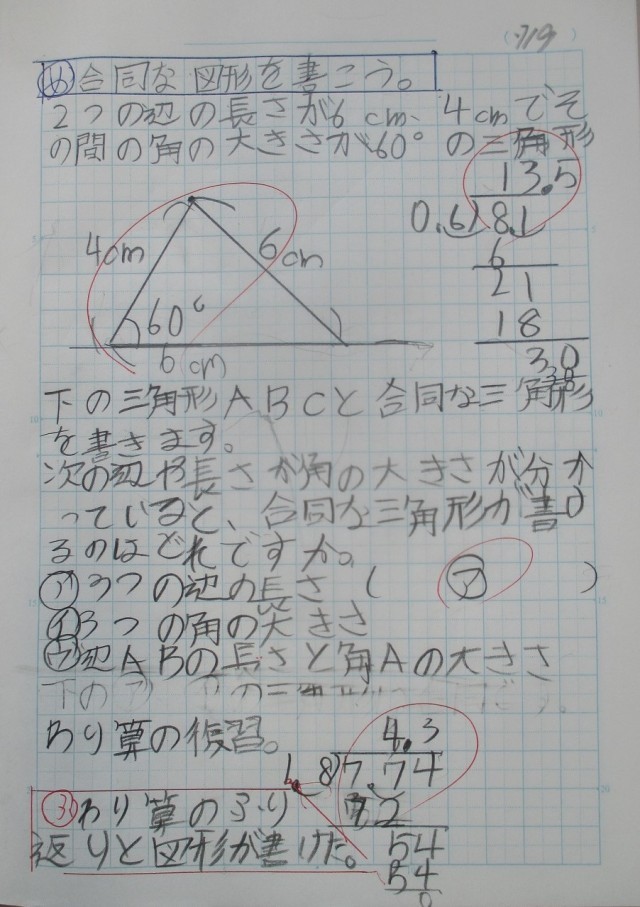 7/9
め 合同な図形を書こう。
2つの辺の長さが6cm、4cmでそ
の間の角の大きさが60°の三角形
13.5
0.6)8.1
6
21
18
30
4cm
6cm
60°
6cm
下の三角形ABCと合同な三角形
を書きます。
次の辺や長さが角の大きさが分か
っていると、合同な三角形が書け
るのはどれですか。
ア 3つの辺の長さ ( ア )
イ 3つの角の大きさ
ウ 辺ABの長さと角Aの大きさ
下の
わり算の復習。
4.3
1.8)7.74
72
54
54
0
ふ わり算のふり
返りと図形が書けた。